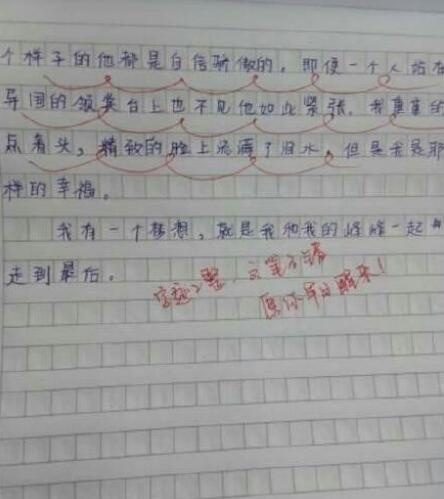 个样子的他都是自信骄傲的。即便一个人站在
异国的领奖台上也不见他如此紧张。我重重的
点着头，精致的脸上流满了泪水，但是我是那
样的幸福。
我有一个梦想，就是我和我的 一起
走到最后。
字迹工整，文笔不错
愿你早日醒来！